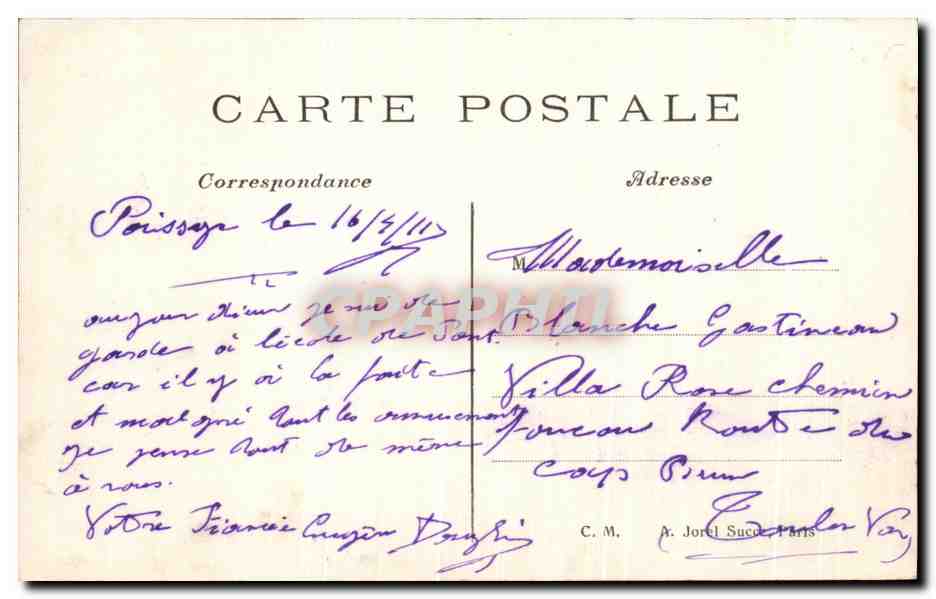 CARTE POSTALE
Correspondance
Adresse
Poissy le 16/4/11
aujourdieu je sui de
garde à l'école de Pont.
car il y à la faite
et malgré tout les amusement
je pense tout de même
à vous.
Votre Fiancé Eugène
M Mademoiselle
Blanche Gastineau
Villa Rose chemin
Route du
cap Brun
Toulon Var
C. M. A. Jorel Succr Paris
CPAPHIL